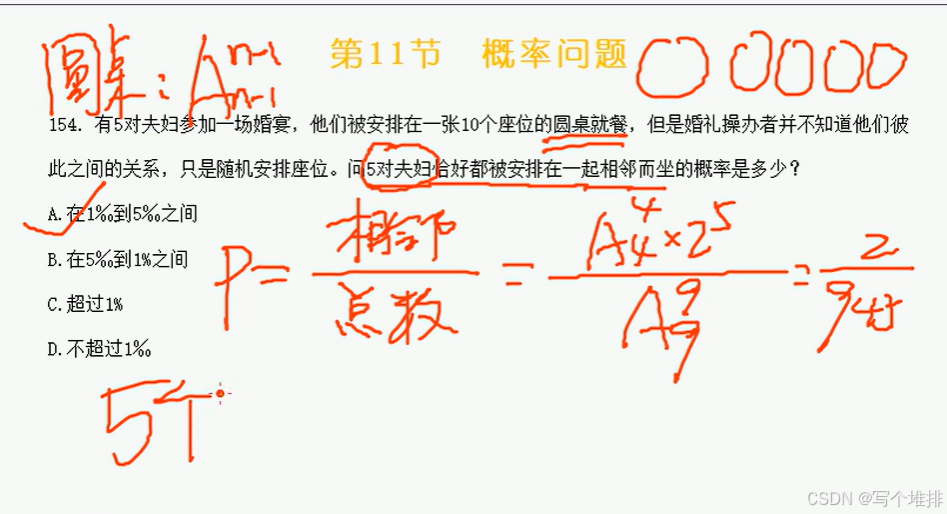 第11节 概率问题
圆桌：A n-1 n-1
154. 有5对夫妇参加一场婚宴，他们被安排在一张10个座位的圆桌就餐，但是婚礼操办者并不知道他们彼
此之间的关系，只是随机安排座位。问5对夫妇恰好都被安排在一起相邻而坐的概率是多少？
A.在1‰到5‰之间
B.在5‰到1%之间
C.超过1%
D.不超过1‰
P= 相邻 / 总数 = A 4 4 ×2 5 / A 9 9 = 2 / 945
5个
CSDN @写个堆排